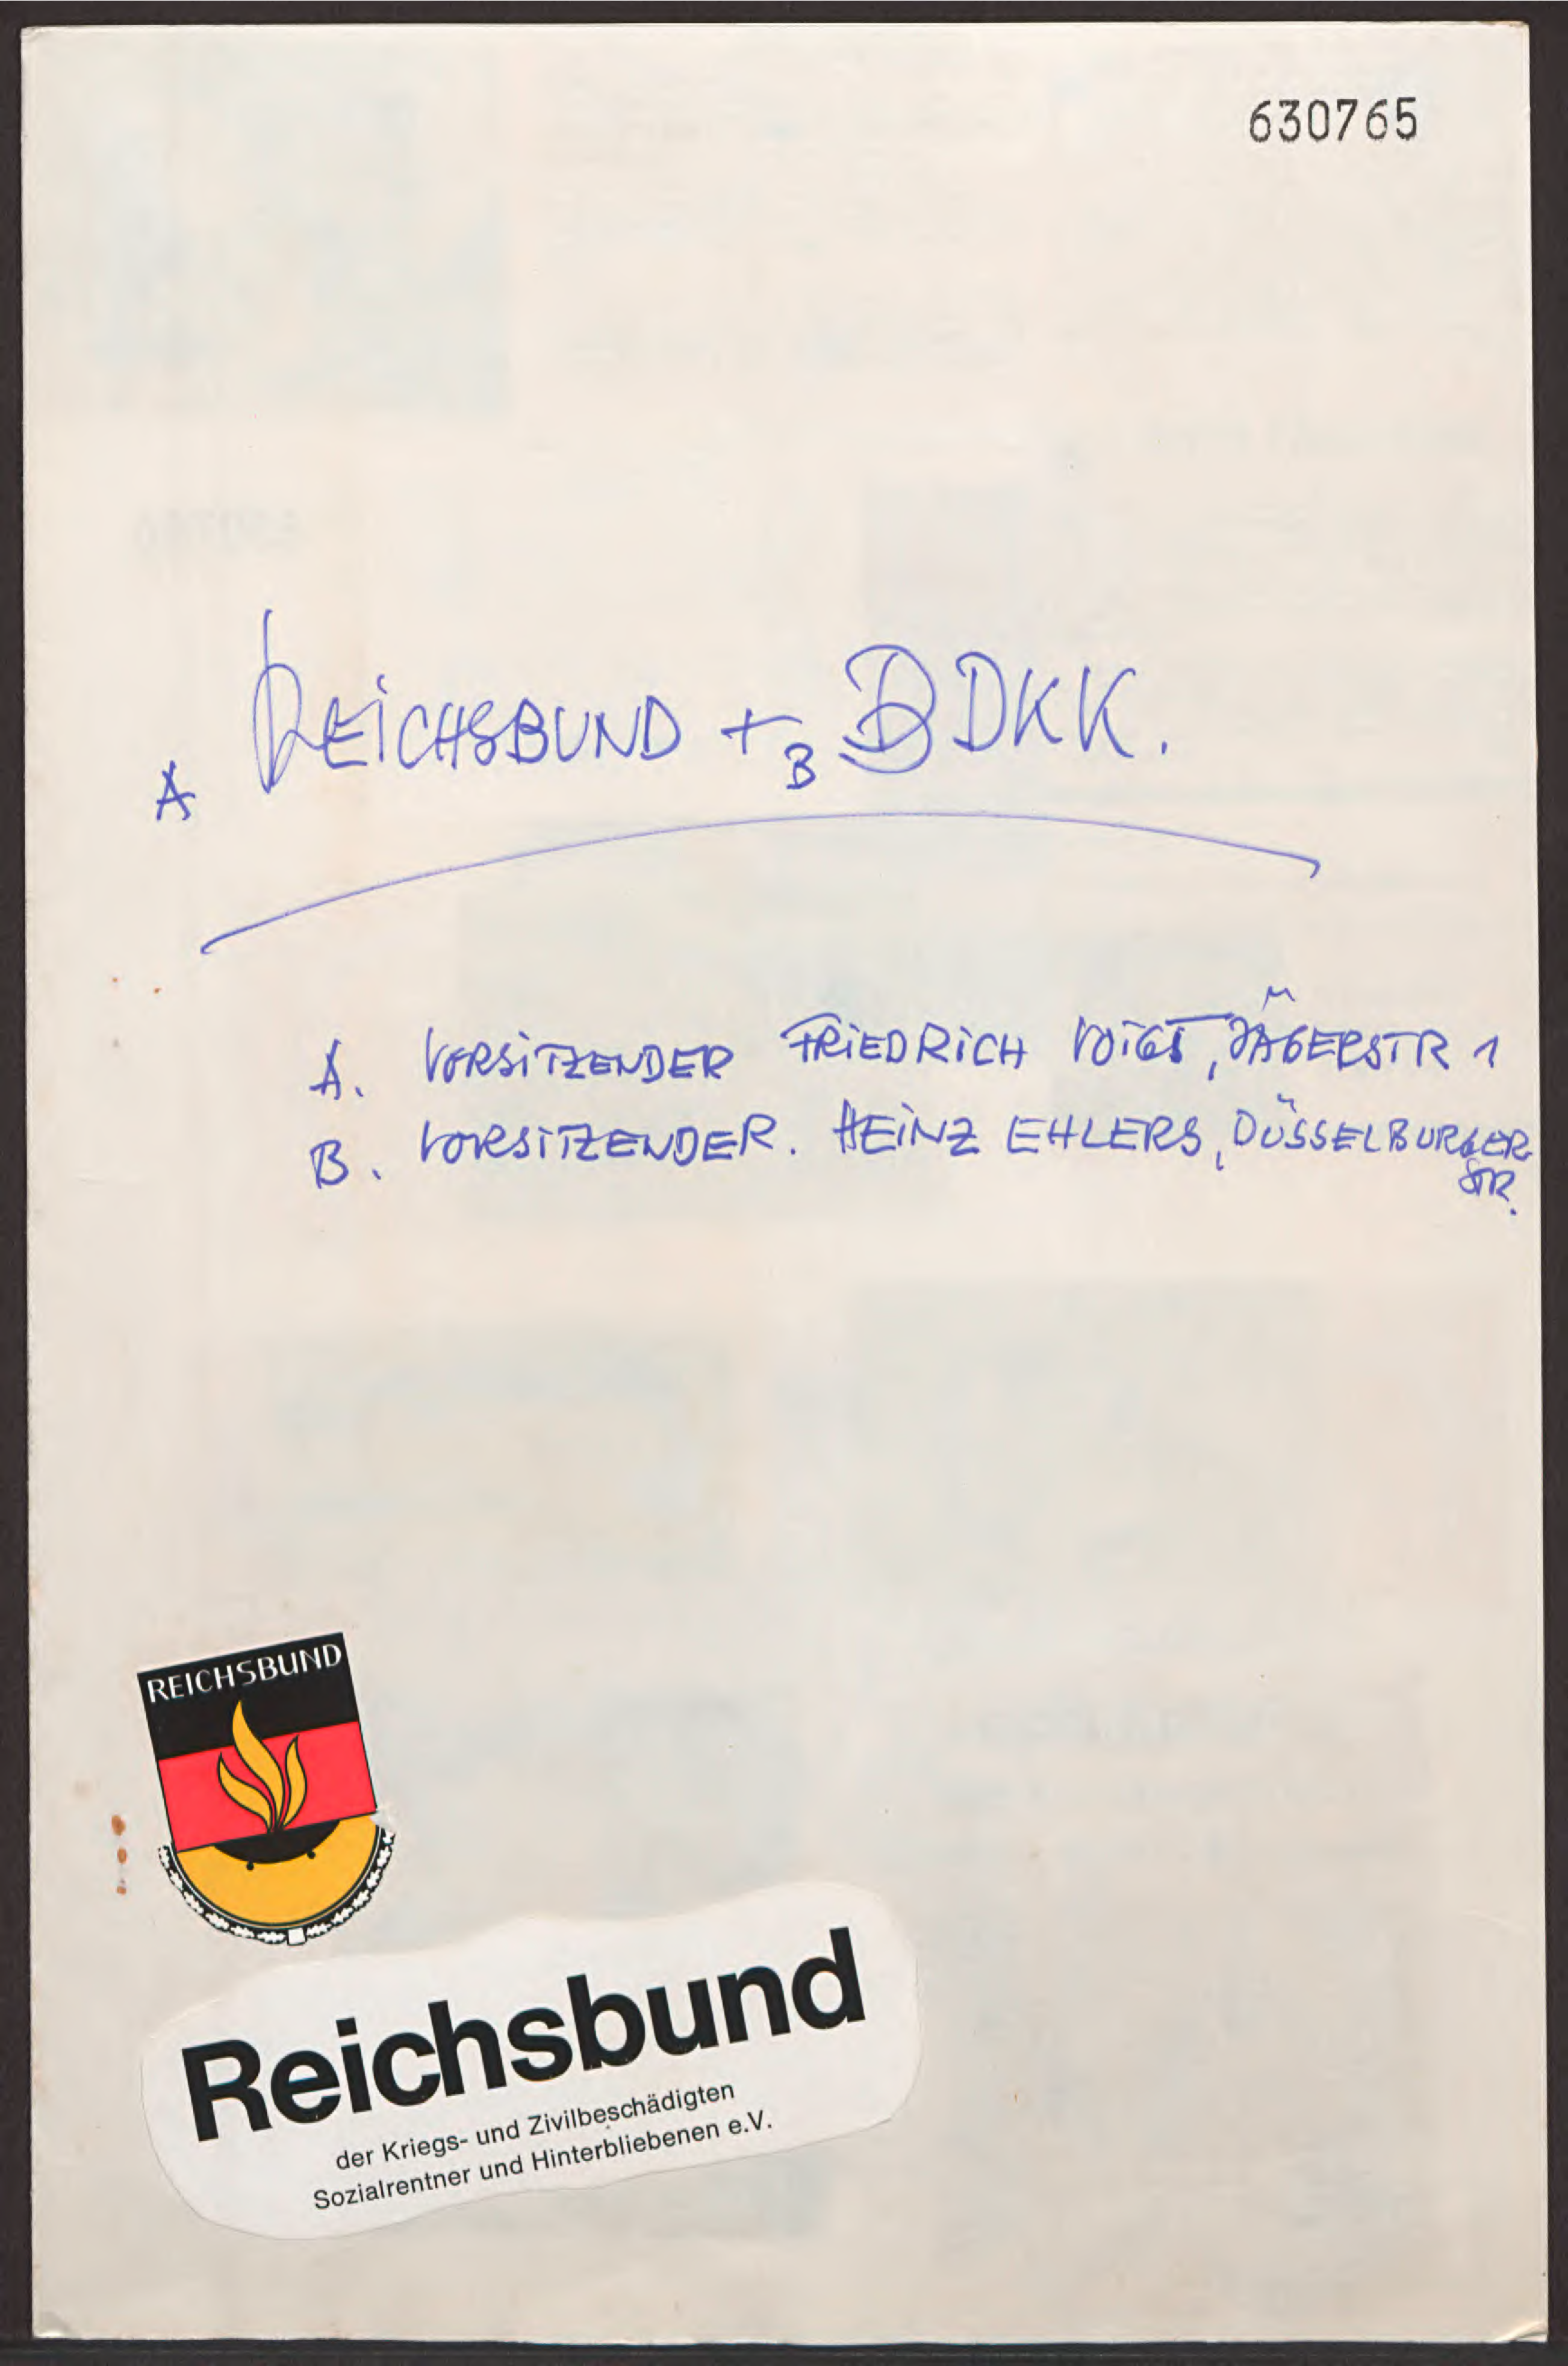 630765
A REICHSBUND + B BDKK.
A. VORSITZENDER FRIEDRICH VOIGT, JÄGERSTR 1
B. VORSITZENDER. HEINZ EHLERS, DÜSSELBURGER
STR.
REICHSBUND
Reichsbund
der Kriegs- und Zivilbeschädigten
Sozialrentner und Hinterbliebenen e.V.